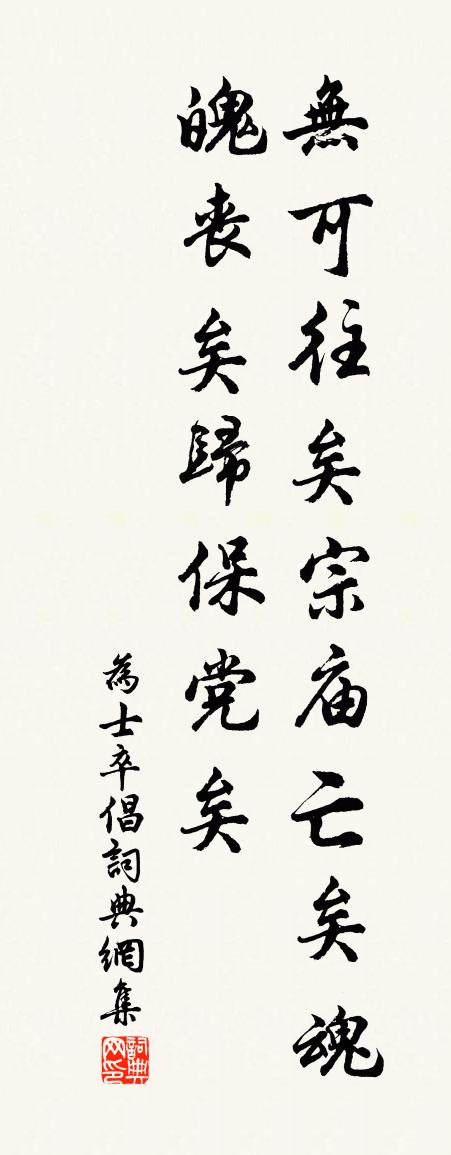 無可往矣宗庙亡矣魂
魄丧矣歸保党矣
為士卒倡詞典網集
詞典网印